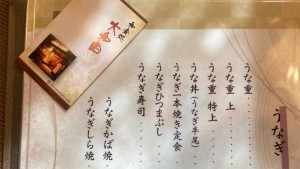 うなぎ
うな重・・・・・
うな重 上・・・・・
うな重 特上・・・・
うな丼(うなぎ半尾)・・
うなぎ一本焼き定食・・
うなぎひつまぶし・・・
うなぎ寿司・・・・
うなぎかば焼・・・・
うなぎしら焼・・・・